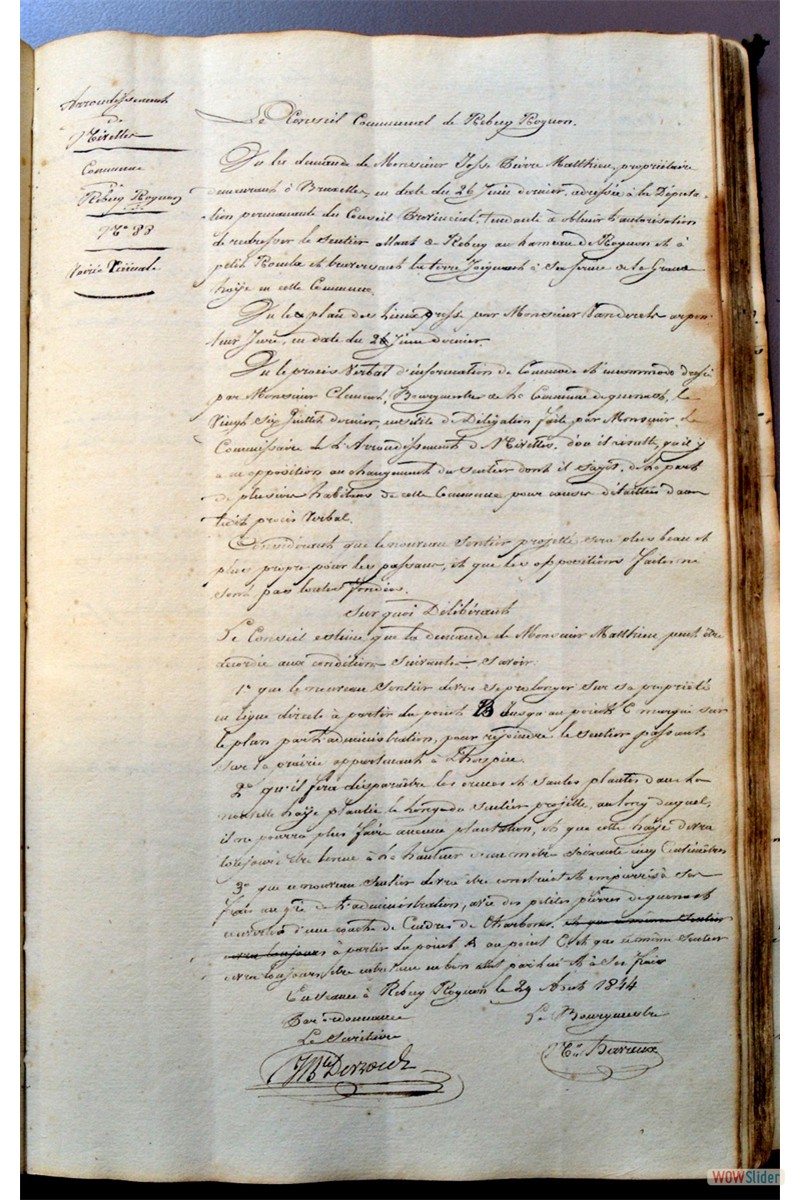 Arrondissement
de
Nivelles
Commune
de
Rebecq Rognon
N° 88
Voirie Vicinale
Le Conseil Communal de Rebecq Rognon.
Vu la demande de Monsieur Pierre Matthieu, propriétaire
demeurant à Bruxelles, en date du 26 Juin dernier, adressée à la Députa-
tion permanante du Conseil Provincial, tendante à obtenir l'autorisation
de redresser le sentier allant de Rebecq au hameau de Rognon et à
petit et traversant la terre Joignant à sa ferme de la Grande
haÿe en cette Commune.
Vu le plan des Lieux dressé par Monsieur Vanderick arpen-
teur Juré, en date du 24 Juin dernier.
Vu le procès Verbal d'information de Commodo et incommodo dressé
par Monsieur Clement, Bourgmestre de la Commune de quenast, le
Vingt Six Juillet dernier, ensuite de Délégation faite par Monsieur Le
Commissaire de L'Arrondissement de Nivelles, d'où il résulte qu'il y
a eu opposition au changement du sentier dont il s'agit, de la part
de plusieurs habitans de cette Commune pour causes détaillées dans
ledit procès Verbal.
Considérant que le nouveau sentier projetté sera plus beau et
plus propre pour les passans, et que les oppositions faites ne
sont pas toutes fondées.
Sur quoi Délibérant
Le Conseil estime que la demande de Monsieur Matthieu peut être
accordée aux conditions suivantes Savoir:
1° que le nouveau Sentier devra se prolonger sur sa propriété
en ligne directe à partir du point B Jusqu'au point C marqué sur
le plan par l'administration, pour rejoindre le sentier passant
sur la prairie appartenant à L'hospice.
2° qu'il fera disparaître les et plantes dans la
nouvelle haÿe plantée le long du sentier projetté, au long duquel,
il ne pourra plus faire aucune plantation, et que cette haÿe devra
toujours être tenue à la hauteur d'un mètre Soixante cinq Centimètres
3° que ce nouveau sentier devra être construit et empierré à ses
frais au gré de l'administration, avec des petites pierres de quenast
couvertes d'une couche de Cendres de Charbons. et que ce même sentier
devra toujours à partir du point A au point C et que ce même sentier
devra toujours être entretenu en bon état par lui et à ses frais
En séance à Rebecq Rognon le 29 Août 1844
Par ordonnance
Le Bourgmestre
Le Secrétaire